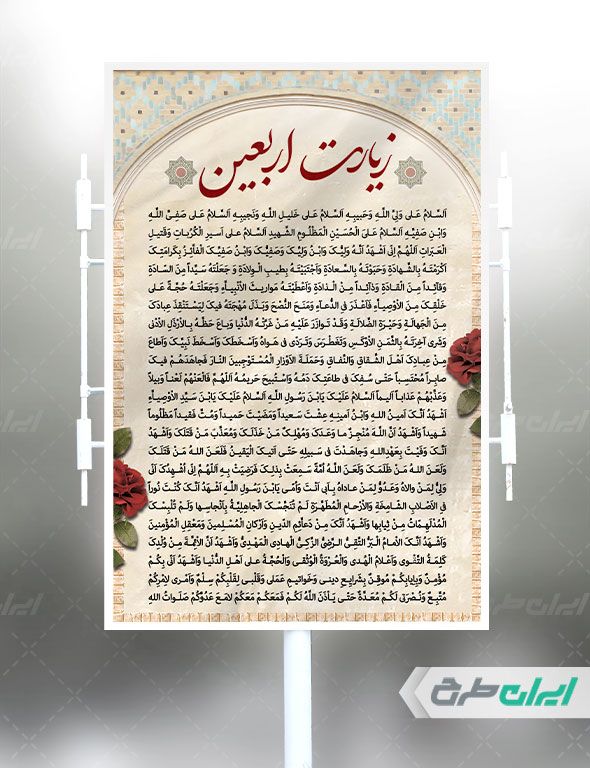 زیارت اربعین
اَلسَّلامُ عَلی وَلِیِّ اللَّهِ وَحَبیبِهِ اَلسَّلامُ عَلی خَلیلِ اللَّهِ وَنَجیبِهِ اَلسَّلامُ عَلی صَفِیِّ اللَّهِ
وَابْنِ صَفِیِّهِ اَلسَّلامُ عَلیَ الْحُسَیْنِ الْمَظْلُومِ الشَّهیدِ اَلسَّلامُ علی اَسیرِ الْکُرُباتِ وَقَتیلِ
الْعَبَراتِ اَللّهُمَّ اِنّی اَشْهَدُ اَنَّهُ وَلِیُّکَ وَابْنُ وَلِیِّکَ وَصَفِیُّکَ وَابْنُ صَفِیِّکَ الْفاَّئِزُ بِکَرامَتِکَ
اَکْرَمْتَهُ بِالشَّهادَةِ وَحَبَوْتَهُ بِالسَّعادَةِ وَاَجْتَبَیْتَهُ بِطیبِ الْوِلادَةِ وَ جَعَلْتَهُ سَیِّداً مِنَ السّادَةِ
وَقاَّئِداً مِنَ الْقادَةِ وَذآئِداً مِنْ الْذادَةِ وَاَعْطَیْتَهُ مَواریثَ الاَْنْبِیاَّءِ وَجَعَلْتَهُ حُجَّةً عَلی
خَلْقِکَ مِنَ الاَْوْصِیاَّءِ فَاَعْذَرَ فیِ الدُّعآءِ وَمَنَحَ النُّصْحَ وَبَذَلَ مُهْجَتَهُ فیکَ لِیَسْتَنْقِذَ عِبادَکَ
مِنَ الْجَهالَةِ وَحَیْرَةِ الضَّلالَةِ وَقَدْ تَوازَرَ عَلَیْهِ مَنْ غَرَّتْهُ الدُّنْیا وَباعَ حَظَّهُ بِالاَْرْذَلِ الاَْدْنی
وَشَری آخِرَتَهُ بِالثَّمَنِ الاَْوْکَسِ وَتَغَطْرَسَ وَتَرَدّی فی هَواهُ وَاَسْخَطَکَ وَاَسْخَطَ نَبِیَّکَ وَاَطاعَ
مِنْ عِبادِکَ اَهْلَ الشِّقاقِ وَالنِّفاقِ وَحَمَلَةَ الاَْوْزارِ الْمُسْتَوْجِبینَ النّارَ فَجاهَدَهُمْ فیکَ
صابِراً مُحْتَسِباً حَتّی سُفِکَ فی طاعَتِکَ دَمُهُ وَاسْتُبیحَ حَریمُهُ اَللّهُمَّ فَالْعَنْهُمْ لَعْناً وَبیلاً
وَعَذِّبْهُمْ عَذاباً اَلیماً اَلسَّلامُ عَلَیْکَ یَابْنَ رَسُولِ اللَّهِ اَلسَّلامُ عَلَیْکَ یَابْنَ سَیِّدِ الاَْوْصِیاَّءِ
اَشْهَدُ اَنَّکَ اَمینُ اللهِ وَابْنُ اَمینِهِ عِشْتَ سَعیداً وَمَضَیْتَ حَمیداً وَمُتَّ فَقیداً مَظْلُوماً
شَهیداً وَاَشْهَدُ اَنَّ اللَّهَ مُنْجِزٌ ما وَعَدَکَ وَمُهْلِکٌ مَنْ خَذَلَکَ وَمُعَذِّبٌ مَنْ قَتَلَکَ وَاَشْهَدُ
اَنَّکَ وَفَیْتَ بِعَهْدِاللهِ وَجاهَدْتَ فی سَبیلِهِ حَتّی اَتیکَ الْیَقینُ فَلَعَنَ اللهُ مَنْ قَتَلَکَ
وَلَعَنَ اللهُ مَنْ ظَلَمَکَ وَلَعَنَ اللَّهُ اُمَّةً سَمِعَتْ بِذلِکَ فَرَضِیَتْ بِهِ اَللّهُمَّ اِنّی اُشْهِدُکَ اَنّی
وَلِیٌّ لِمَنْ والاهُ وَعَدُوٌّ لِمَنْ عاداهُ بِاَبی اَنْتَ وَاُمّی یَابْنَ رَسُولِ اللَّهِ اَشْهَدُ اَنَّکَ کُنْتَ نُوراً
فیِ الاَْصْلابِ الشّامِخَةِ وَالاَْرْحامِ الْمُطَهَّرَةِ لَمْ تُنَجِّسْکَ الْجاهِلِیَّةُ بِاَنْجاسِها وَلَمْ تُلْبِسْکَ
الْمُدْلَهِمّاتُ مِنْ ثِیابِها وَاَشْهَدُ اَنَّکَ مِنْ دَعاَّئِمِ الدّینِ وَاَرْکانِ الْمُسْلِمینَ وَمَعْقِلِ الْمُؤْمِنینَ
وَاَشْهَدُ اَنَّکَ الاِْمامُ الْبَرُّ التَّقِیُّ الرَّضِیُّ الزَّکِیُّ الْهادِی الْمَهْدِیُّ وَاَشْهَدُ اَنَّ الاَْئِمَّةَ مِنْ وُلْدِکَ
کَلِمَةُ التَّقْوی وَاَعْلامُ الْهُدی وَالْعُرْوَةُ الْوُثْقی وَالْحُجَّةُ علی اَهْلِ الدُّنْیا وَاَشْهَدُ اَنّی بِکُمْ
مُؤْمِنٌ وَبِاِیابِکُمْ مُوقِنٌ بِشَرایِعِ دینی وَخَواتیمِ عَمَلی وَقَلْبی لِقَلْبِکُمْ سِلْمٌ وَاَمْری لاَِمْرِکُمْ
مُتَّبِعٌ وَنُصْرَتی لَکُمْ مُعَدَّةٌ حَتّی یَاْذَنَ اللَّهُ لَکُمْ فَمَعَکُمْ مَعَکُمْ لامَعَ عَدُوِّکُمْ صَلَواتُ اللهِ
ایران طرح